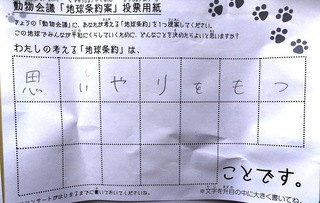 動物会議「地球条約案」投票用紙
きょうの「動物会議」に、あなたが考える「地球条約」を1つ提案してください。
この地球でみんなが平和にくらしていくために、どんなことを決めたらよいと思いますか?
わたしの考える「地球条約」は、
思いやりをもつ
ことです。
※文字を升目の中に大きく書いてね。
コンサートがはじまるまでに書いておいてくださいね。